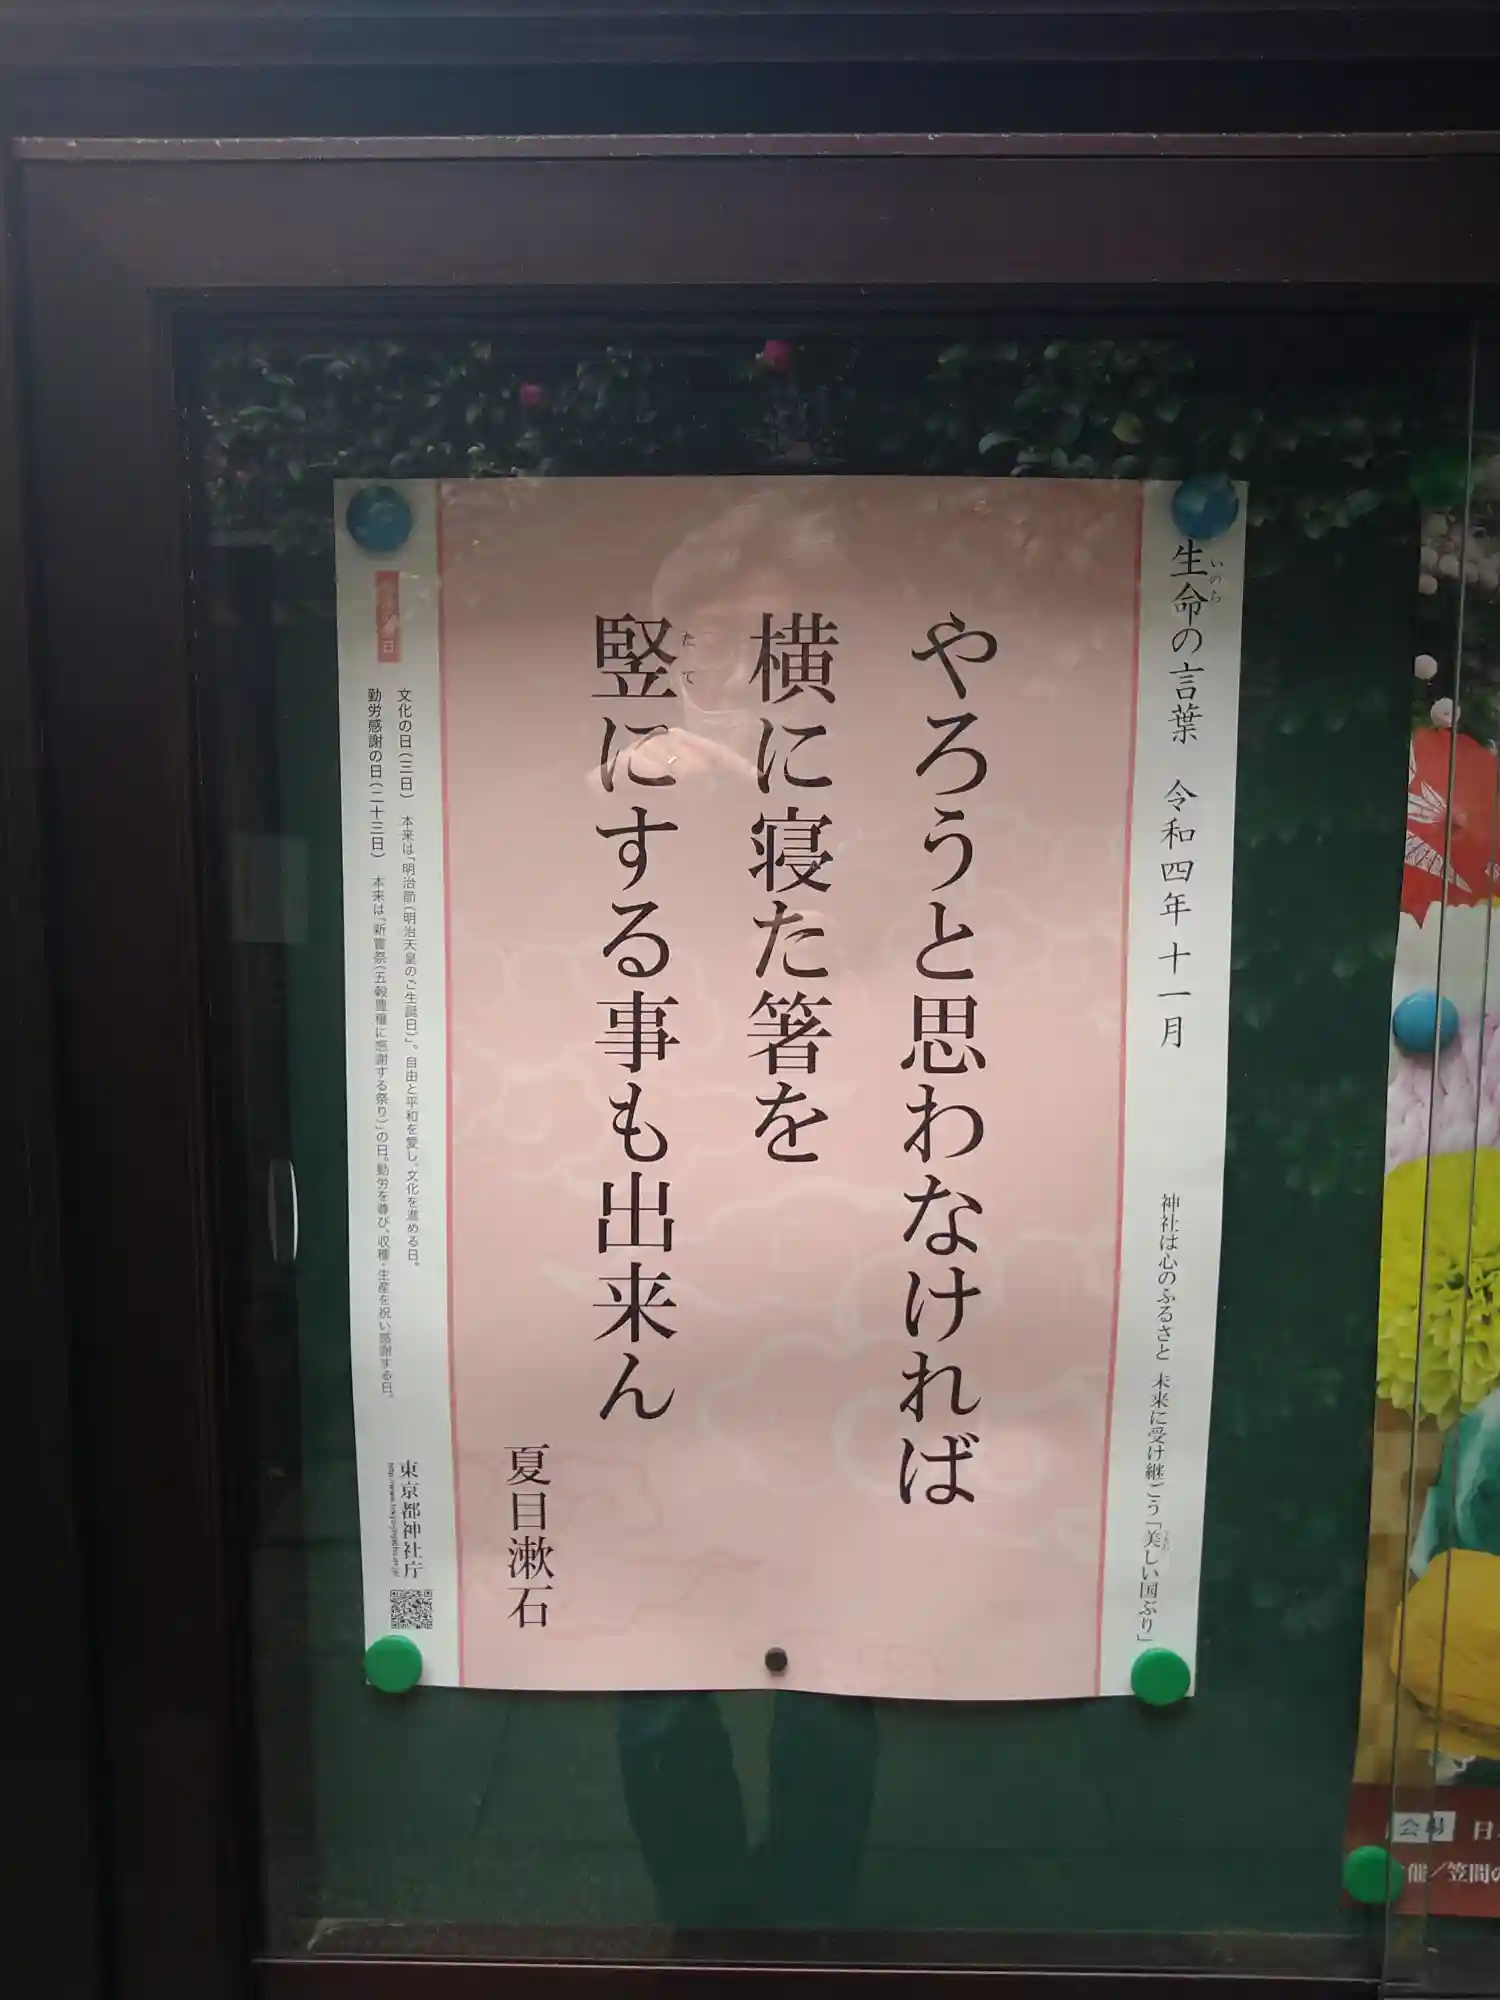 生命の言葉　令和四年十一月
いのち
神社は心のふるさと　未来に受け継ごう「美しい国ぶり」
やろうと思わなければ
横に寝た箸を
竪にする事も出来ん
たて
夏目漱石
文化の日(三日)　本来は「明治節(明治天皇のご生誕日)」。自由と平和を愛し、文化を進める日。
勤労感謝の日(二十三日)　本来は「新嘗祭(五穀豊穣に感謝する祭り)」の日。勤労を尊び、収穫・生産を祝い感謝する日。
東京都神社庁
会場　日
催／笠間の